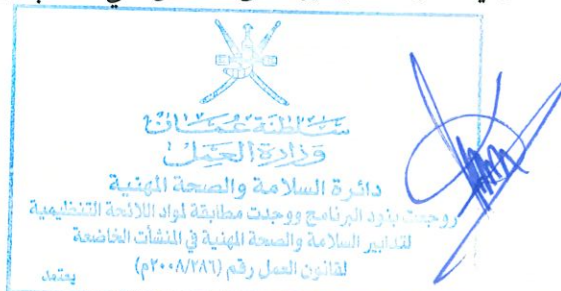 سلطنة عمان
وزارة العمل
دائرة السلامة والصحة المهنية
روجعت بنود البرنامج ووجدت مطابقة لمواد اللائحة التنظيمية
لتدابير السلامة والصحة المهنية في المنشآت الخاضعة
لقانون العمل رقم (٢٠٠٨/٢٨٦م)
يعتمد